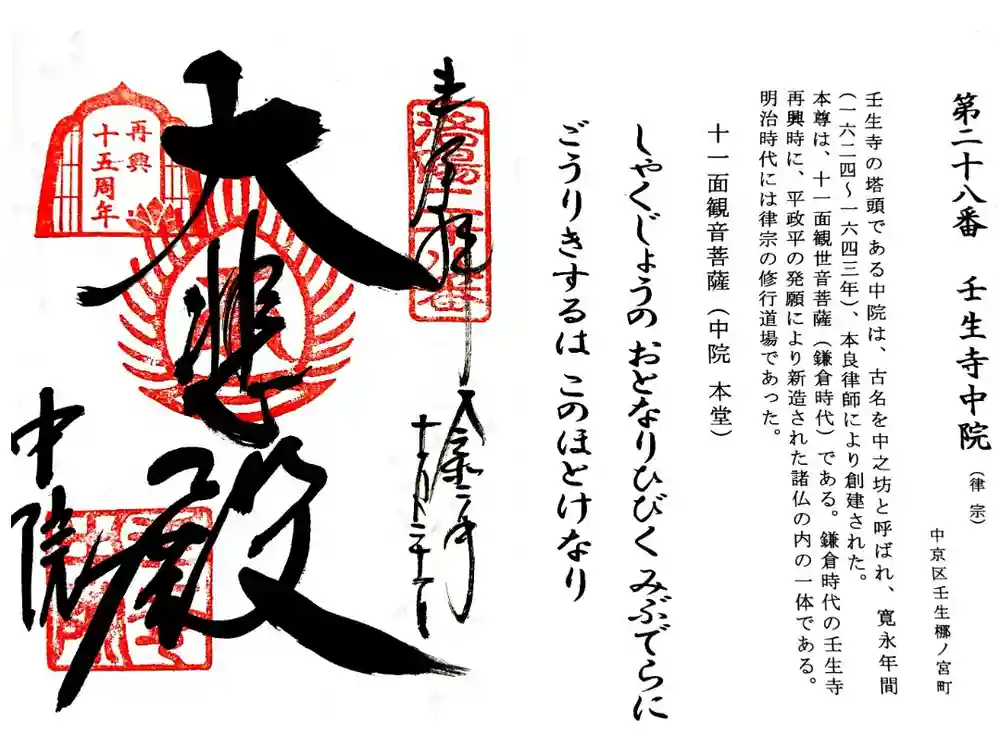 第二十八番 壬生寺中院（律宗）
中京区壬生梛ノ宮町
壬生寺の塔頭である中院は、古名を中之坊と呼ばれ、寛永年間
（一六二四～一六四三年）、本良律師により創建された。
本尊は、十一面観世音菩薩（鎌倉時代）である。鎌倉時代の壬生寺
再興時に、平政平の発願により新造された諸仏の内の一体である。
明治時代には律宗の修行道場であった。
十一面観音菩薩（中院 本堂）
しゃくじょうの おとなりひびく みぶでらに
ごうりきするは このほとけなり
奉拝
洛陽二十八番
大悲殿
再興
十五周年
中院